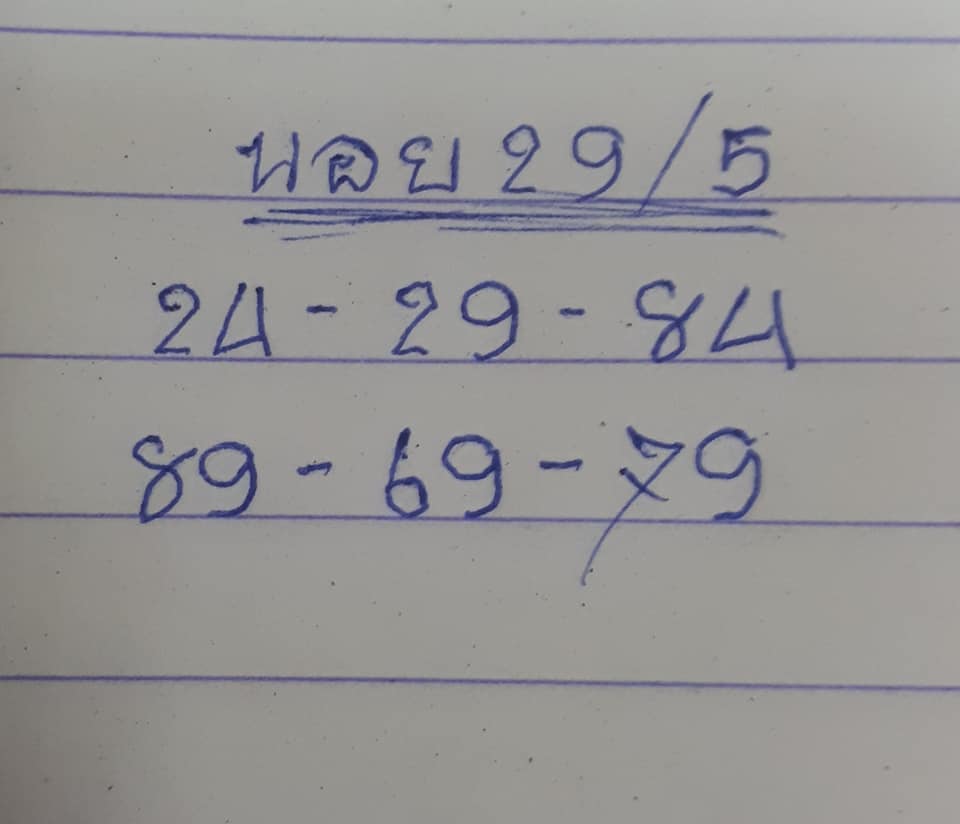 นอย 29/5
24 - 29 - 84
89 - 69 - 79